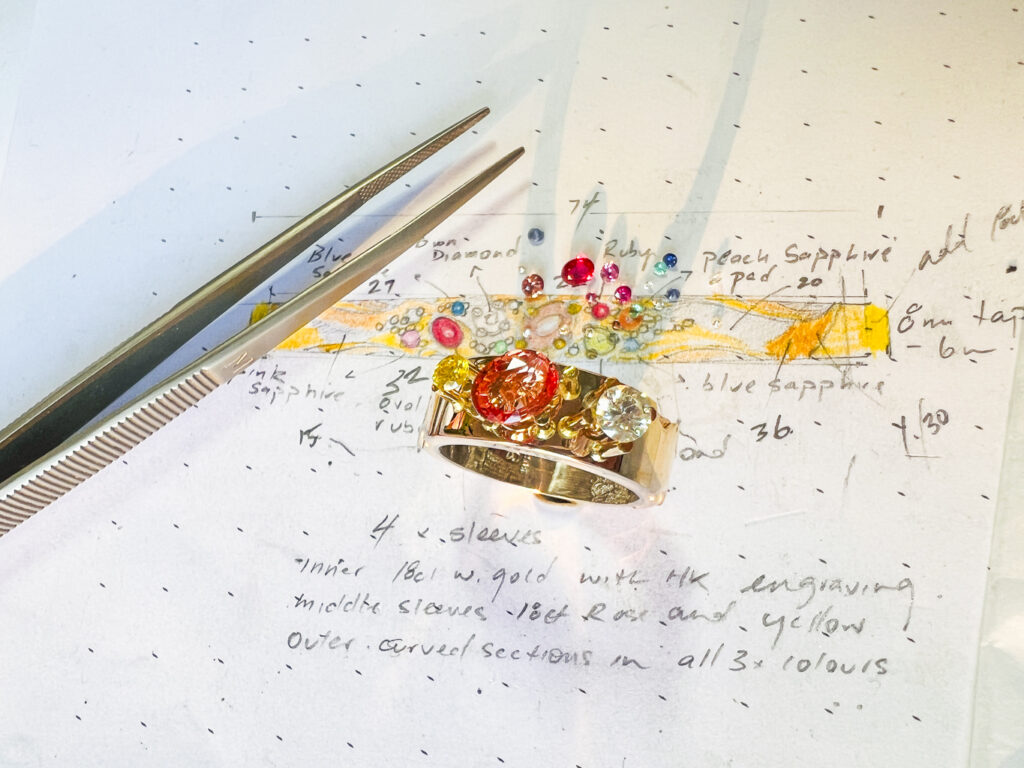 74
6mm Diamond
Ruby
peach Sapphire
Blue
pad
add
27
20
8mm tap
- 6m
pink Sapphire
32
oval
blue Sapphire
36
4 x sleeves
Inner 18ct w. gold with HK engraving
middle sleeves 18ct Rose and yellow
outer curved sections in all 3x colours